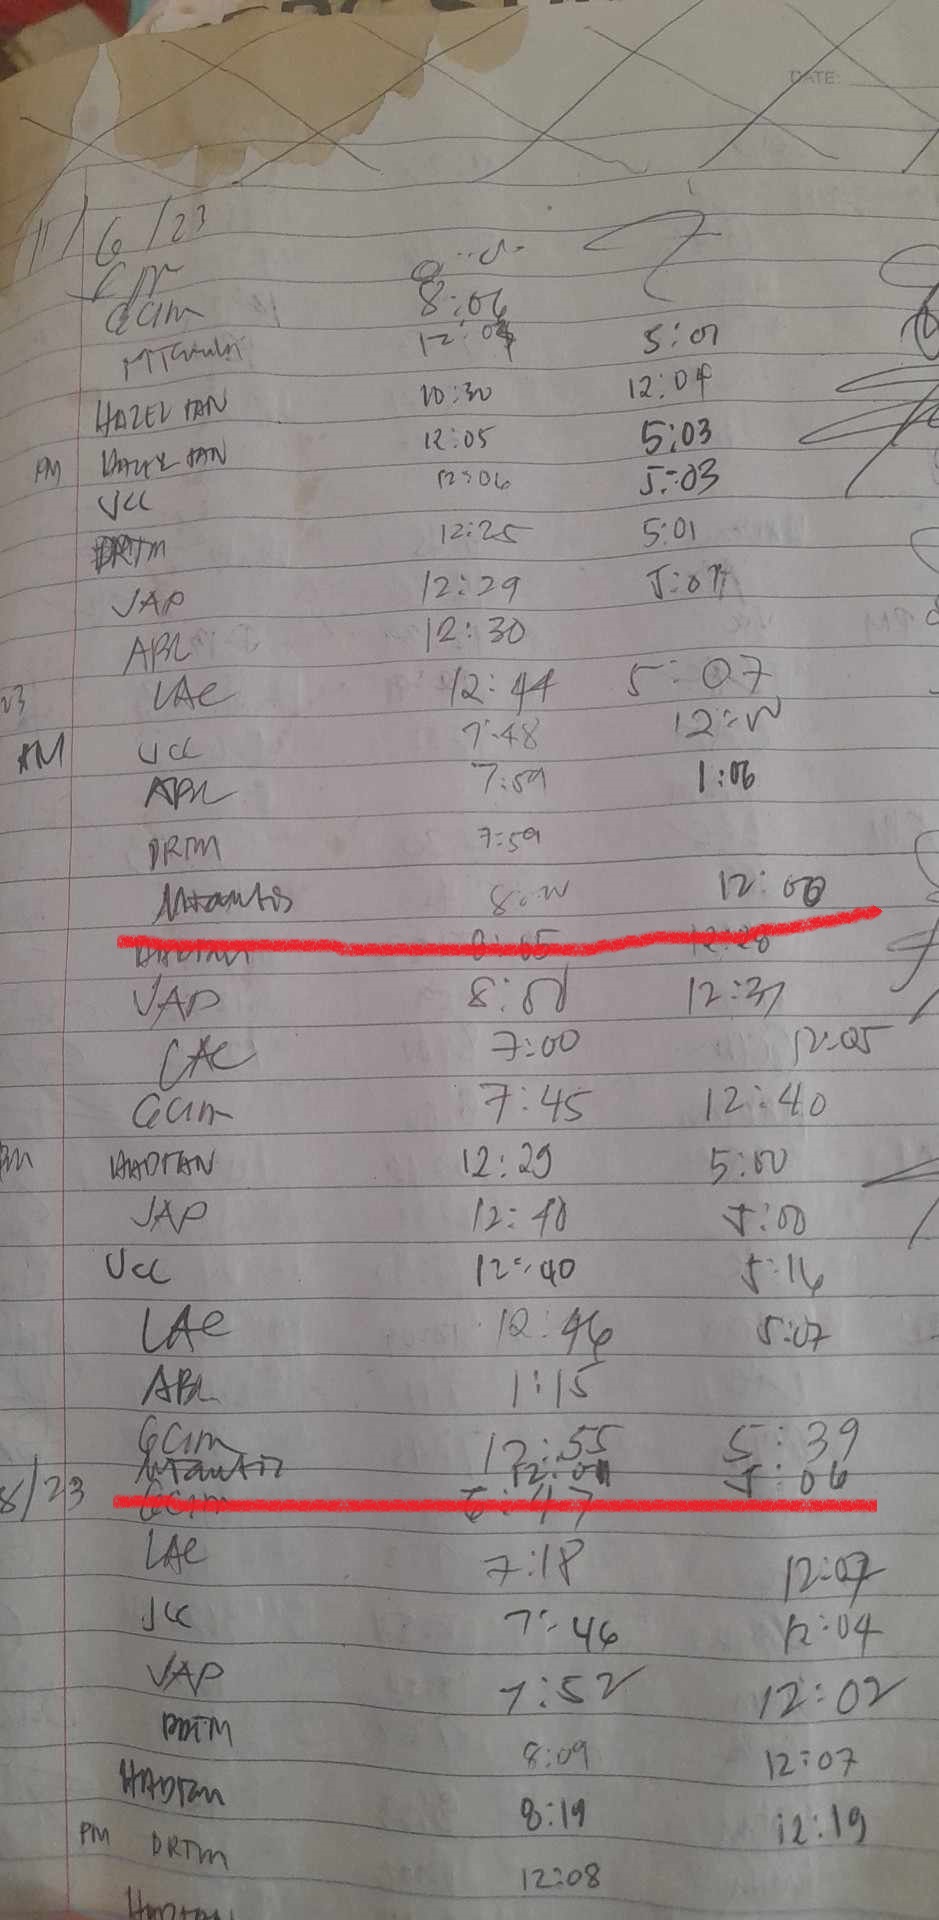 DATE:
11/6/23
GCIM 8:06
12:04 5:01
HAZEL TAN 10:30 12:04
PM HAZEL TAN 12:05 5:03
VCC 12:06 5:03
DRTM 12:25 5:01
VAP 12:29 5:07
ABL 12:30
23 LAC 12:44 5:07
AM VCC 7:48
ABL 7:59 1:06
DRTM 7:59
12:00
8:05 12:20
VAP 8:01 12:37
LAC 7:00 12:05
GCIM 7:45 12:40
PM HADTAN 12:29 5:00
VAP 12:40 5:00
VCC 12:40 5:16
LAC 12:46 5:07
ABL 1:15
GCIM 12:55 5:39
12:01 5:06
8/23 GCIM 6:47
LAC 7:18 12:07
VCC 7:46 12:04
VAP 7:52 12:02
DRTM 8:09 12:07
HADTAN 8:19 12:19
PM DRTM 12:08